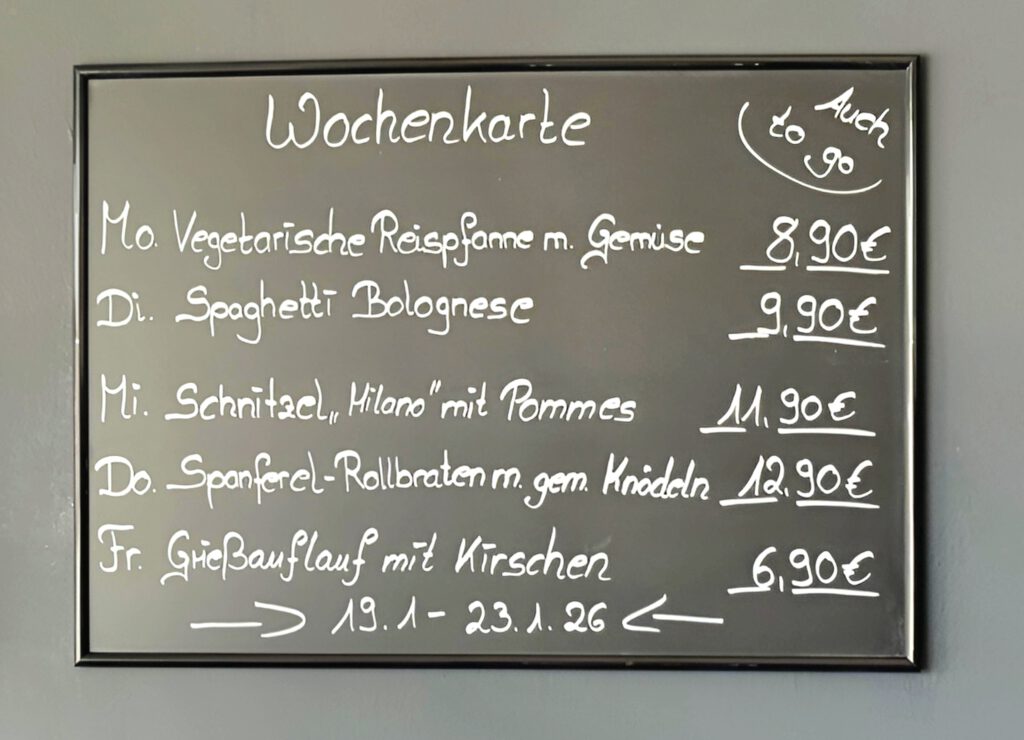 Wochenkarte
Auch
to go
Mo. Vegetarische Reispfanne m. Gemüse 8,90€
Di. Spaghetti Bolognese 9,90€
Mi. Schnitzel „Milano" mit Pommes 11,90€
Do. Spanferel-Rollbraten m. gem. Knödeln 12,90€
Fr. Grießauflauf mit Kirschen 6,90€
19.1 - 23.1.26